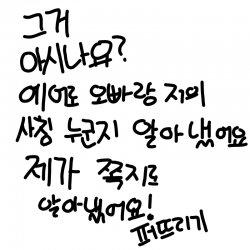 그거
아시나요?
에어로 오빠랑 저의
사칭 누군지 알아냈어요
제가 쪽지로
알아냈어요!
퍼뜨리기